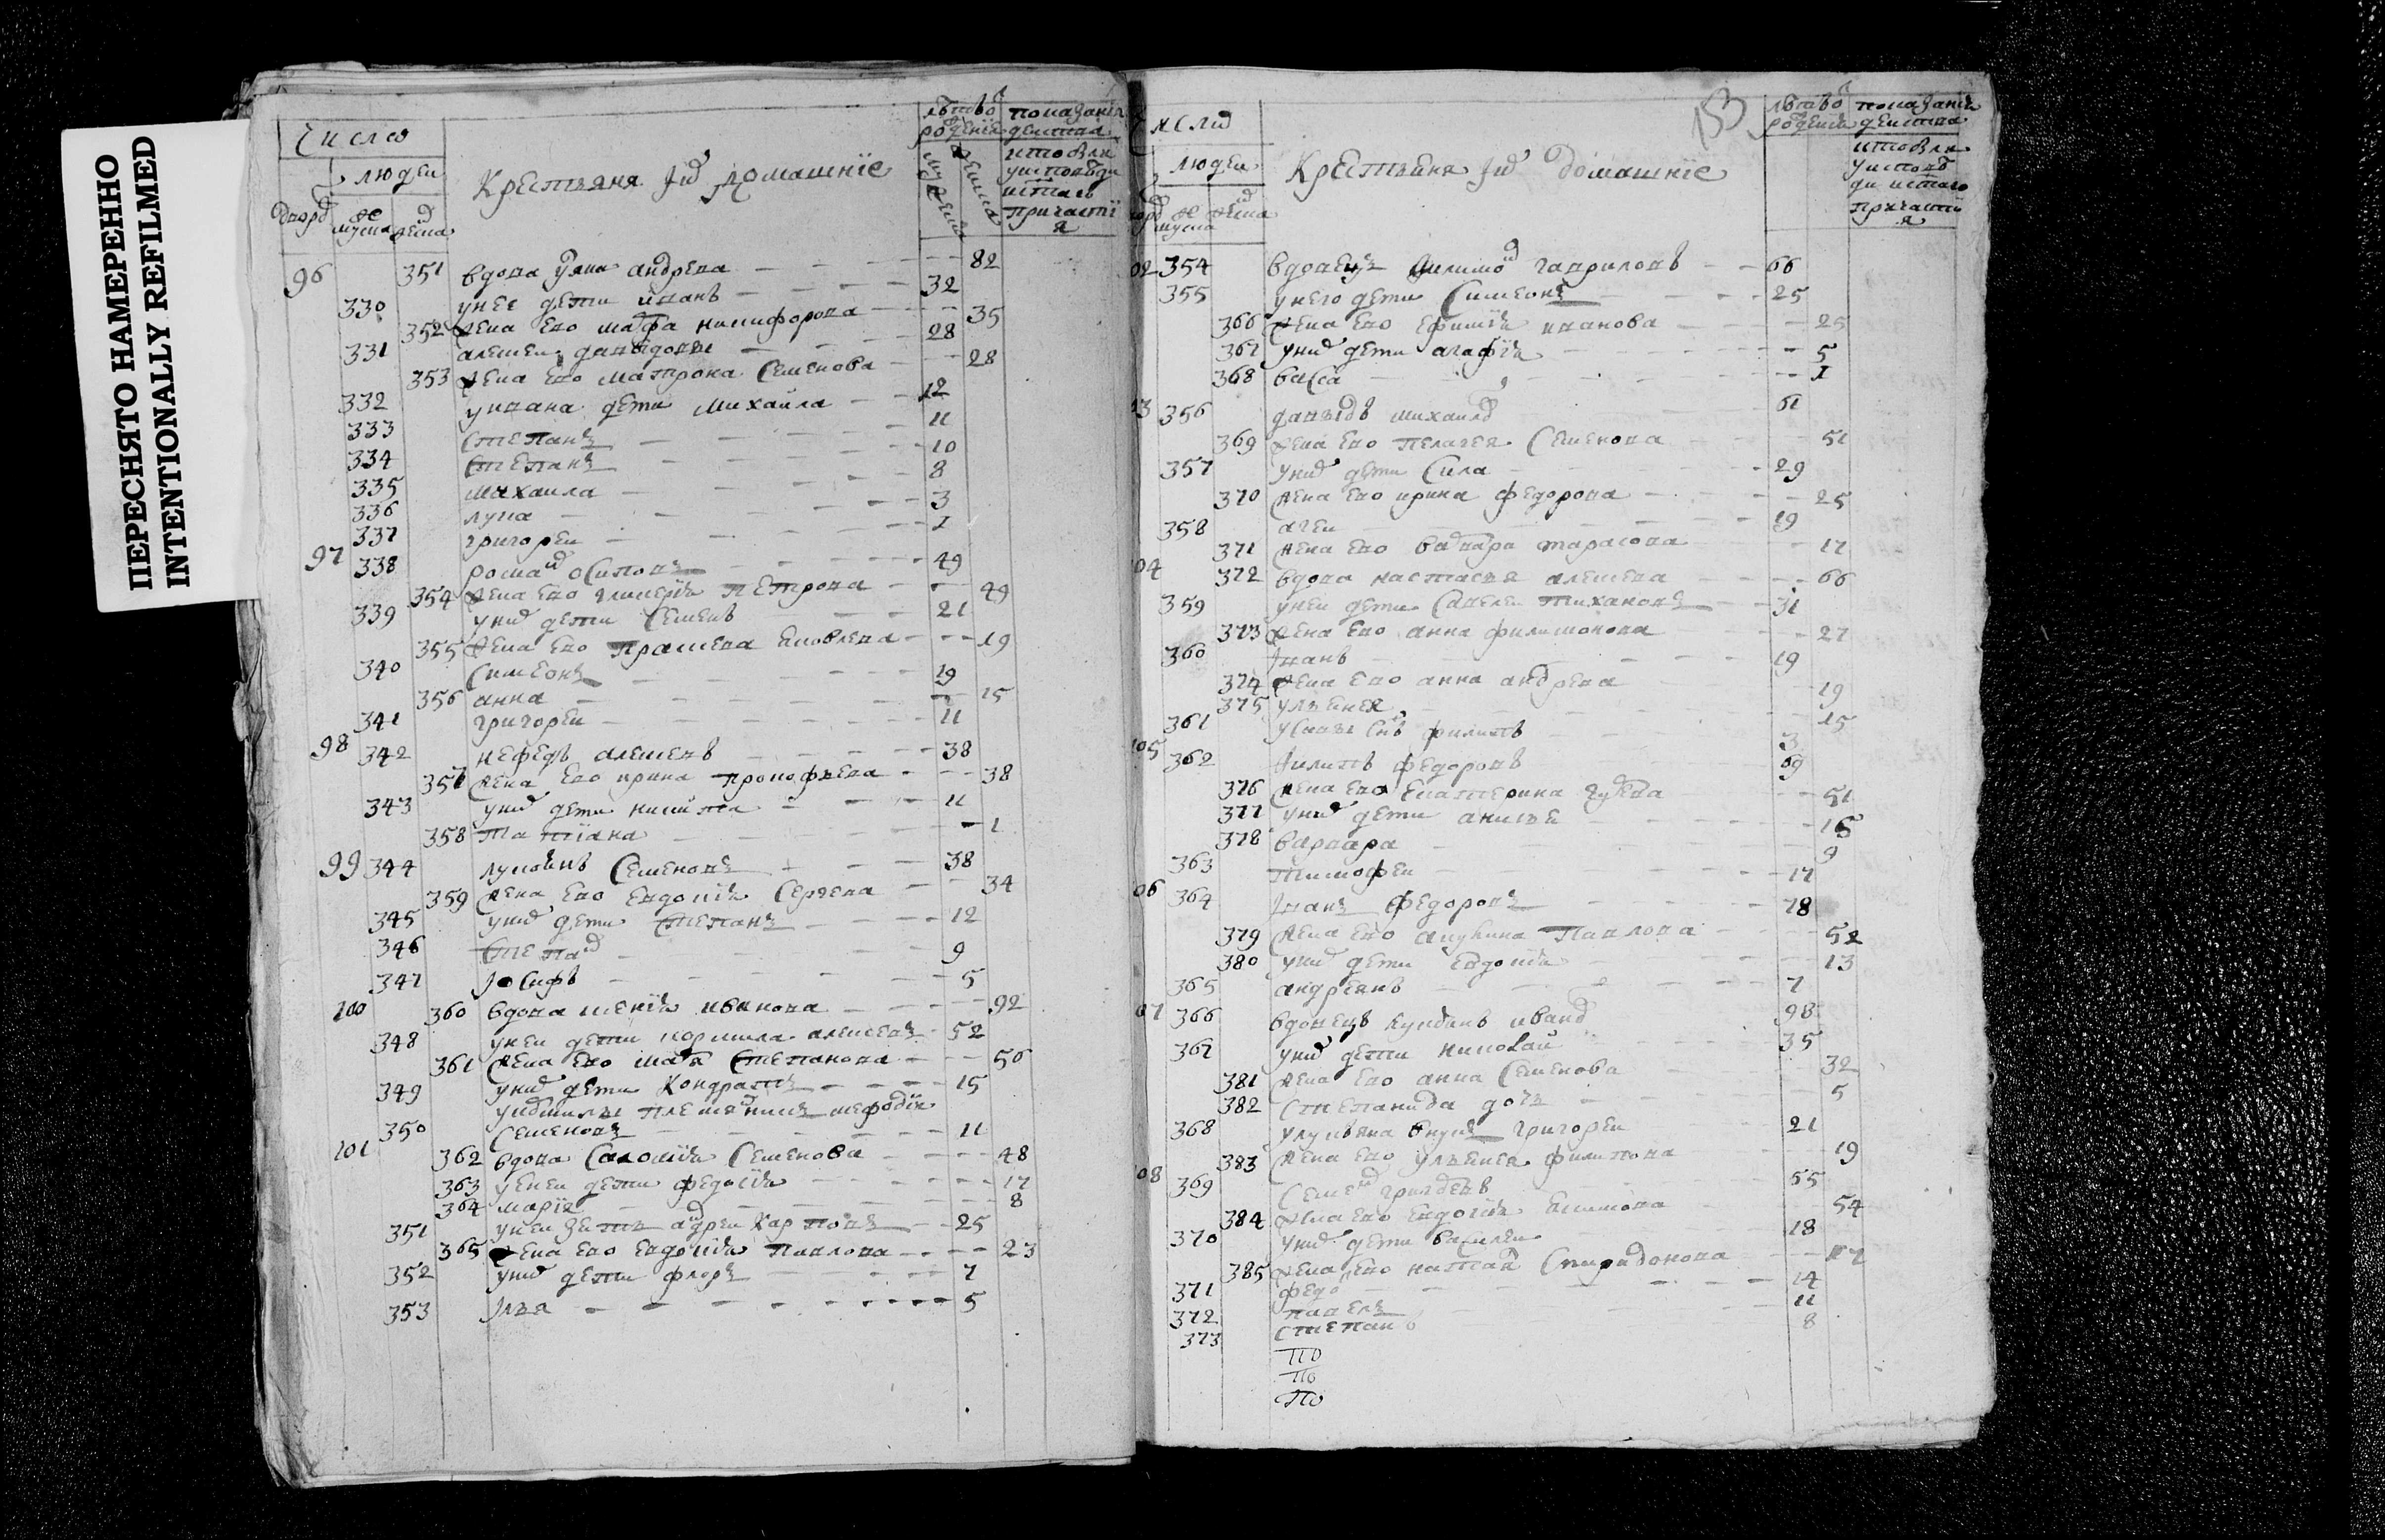 ПЕРЕСНЯТО НАМЕРЕННО
INTENTIONALLY REFILMED
Число
людеи
Крестьяня их домашние
лѣт от рождения
показания
96 351 вдова Ульяна андрева 82
330 у нее дети иванъ 32
352 жена ево марфа никифорова 35
331 алексеи давыдовы 28
353 жена ево матрона семенова 28
332 у ивана дети михаила 12
333 степанъ 11
334 степанъ 10
335 михаила 8
336 лука 3
337 григореи 1
97 338 роман осиповъ 49
354 жена ево гликерия петрова 49
339 у них дети семенъ 21
355 жена ево прасковя яковлева 19
340 симеонъ 19
356 анна 15
341 григореи 11
98 342 нефедъ алексевъ 38
357 жена ево ирина прокофьева 38
343 у них дети никита 11
358 татиана 1
99 344 лукоянъ семеновъ 38
359 жена ево евдокия сергева 34
345 у них дети степанъ 12
346 степан 9
347 иосифъ 5
100 360 вдова ксения иванова 92
348 у неи дети кормила алексевъ 52
361 жена ево марфа степанова 50
349 у них дети кондратъ 15
племянникъ мефодия
350 семеновъ 11
101 362 вдова саломия семенова 48
363 у неи дети федосия 17
364 мария 8
351 у неи зять андреи карповъ 25
365 жена ево евдокия павлова 23
352 у них дети флоръ 7
353 илья 5
153
число
людеи
Крестьяня их домашние
лѣт от рождения
показания
02 354 вдовецъ филимон гавриловъ 66
355 у него дети симеонъ 25
366 жена ево ефимия иванова 25
367 у них дети агафия 5
368 васса 1
03 356 давыдъ михаилов 61
369 жена ево пелагея семенова 51
357 у них дети сила 29
370 жена ево ирина федорова 25
358 агеи 19
371 жена ево варвара тарасова 17
04 372 вдова настасья алексева 66
359 у неи дети савелеи тихановъ 31
373 жена ево анна филимонова 27
360 иванъ 19
374 жена ево анна андрева 19
375 ульянея 15
361 у савы сын филипъ 3
105 362 филипъ федоровъ 69
376 жена ево екатерина 51
377 у них дети анисья 16
378 варвара 9
363 тимофеи 17
06 364 иванъ федоровъ 78
379 жена ево акулина павлова 52
380 у них дети евдокия 13
365 андриянъ 7
07 366 вдовецъ лукиянъ иванов 98
367 у них дети николаи 35
381 жена ево анна семенова 32
382 степанида дочь 5
368 у лукьяна внукъ григореи 21
383 жена ево ульянея филипова 19
08 369 семен григоревъ 55
384 жена ево евдокия екимова 54
370 у них дети василеи 18
385 жена ево наталя спиридонова 17
371 федо 14
372 павелъ 11
373 степан 8
по
по
по